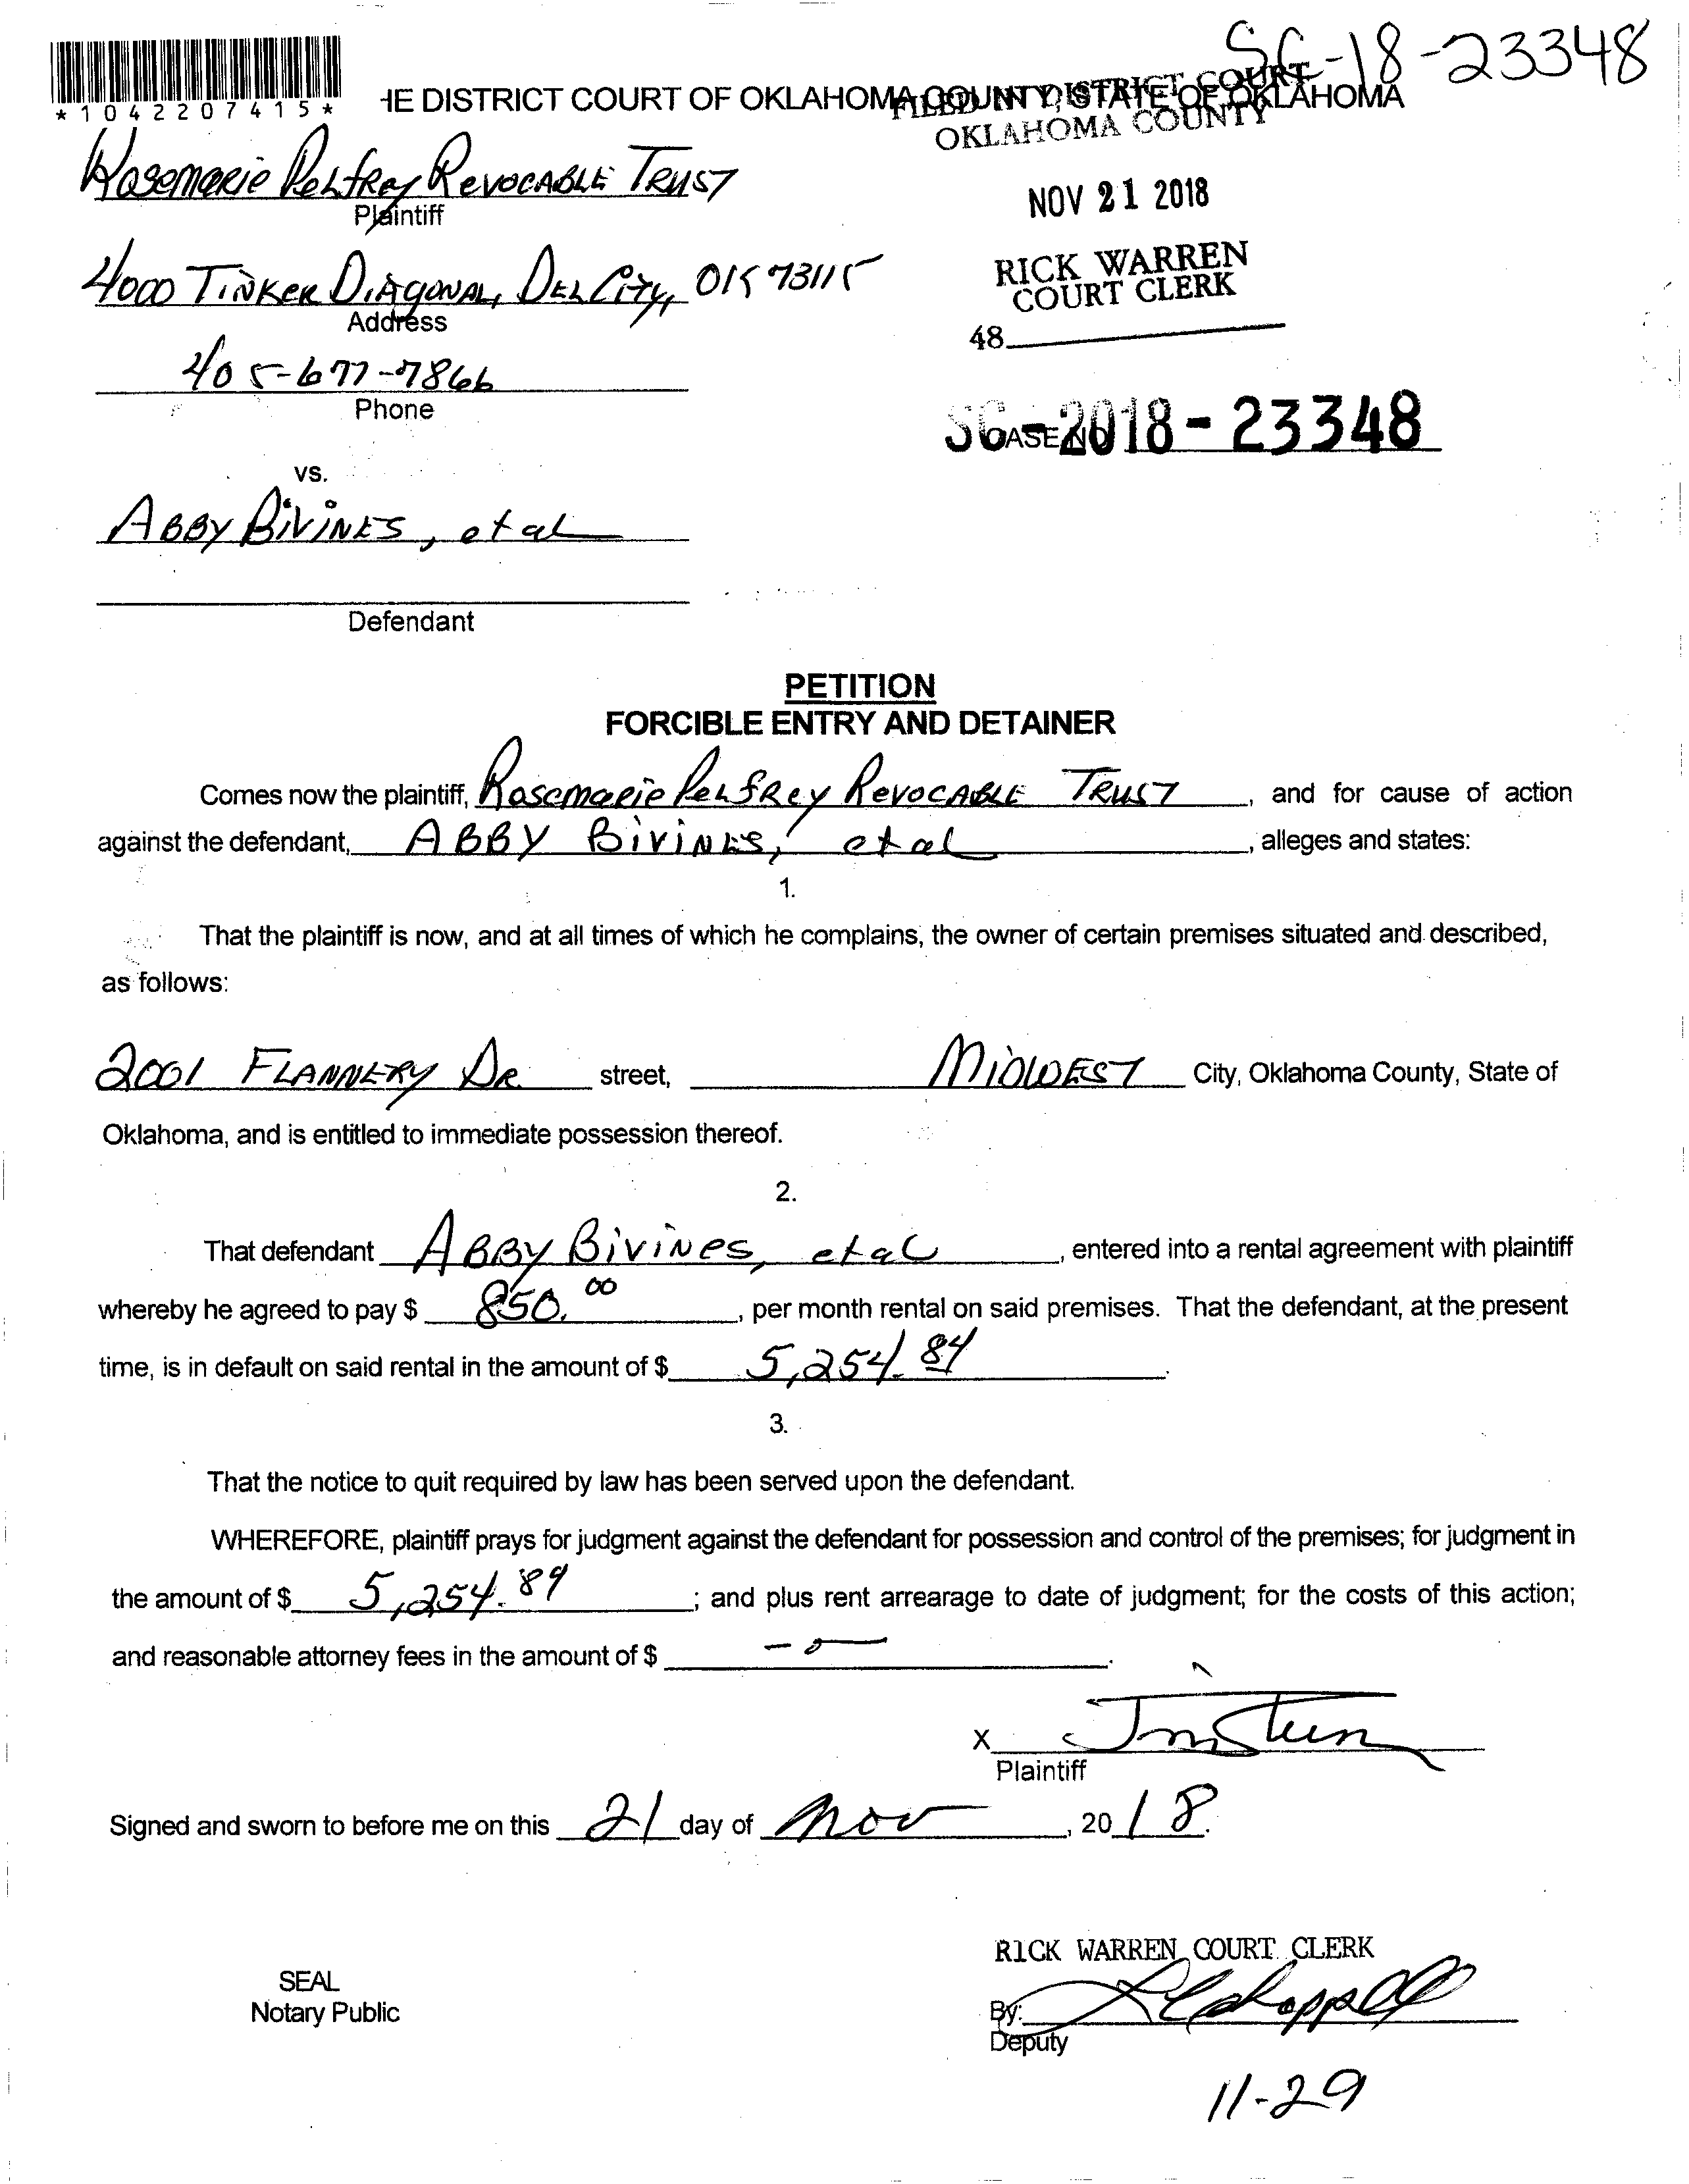 SC-18-23348
*1042207415*
HE DISTRICT COURT OF OKLAHOMA COUNTY, STATE OF OKLAHOMA
FILED IN DISTRICT COURT
OKLAHOMA COUNTY
Rosemarie Pelfrey Revocable Trust
Plaintiff
NOV 21 2018
4000 Tinker Diagonal, Del City, OK 73115
Address
RICK WARREN
COURT CLERK
48
405-677-7866
Phone
CASE NO
SC-2018-23348
vs.
Abby Bivines, et al
Defendant
PETITION
FORCIBLE ENTRY AND DETAINER
Comes now the plaintiff, Rosemarie Pelfrey Revocable Trust, and for cause of action
against the defendant, Abby Bivines, et al, alleges and states:
1.
That the plaintiff is now, and at all times of which he complains, the owner of certain premises situated and described,
as follows:
2001 Flannery Dr. street, Midwest City, Oklahoma County, State of
Oklahoma, and is entitled to immediate possession thereof.
2.
That defendant Abby Bivines, et al, entered into a rental agreement with plaintiff
whereby he agreed to pay $ 850.00, per month rental on said premises. That the defendant, at the present
time, is in default on said rental in the amount of $ 5,254.84.
3.
That the notice to quit required by law has been served upon the defendant.
WHEREFORE, plaintiff prays for judgment against the defendant for possession and control of the premises; for judgment in
the amount of $ 5,254.84; and plus rent arrearage to date of judgment; for the costs of this action;
and reasonable attorney fees in the amount of $ -0-.
X
Plaintiff
Signed and sworn to before me on this 21 day of Nov, 2018.
RICK WARREN COURT CLERK
SEAL
Notary Public
By:
Deputy
11-29